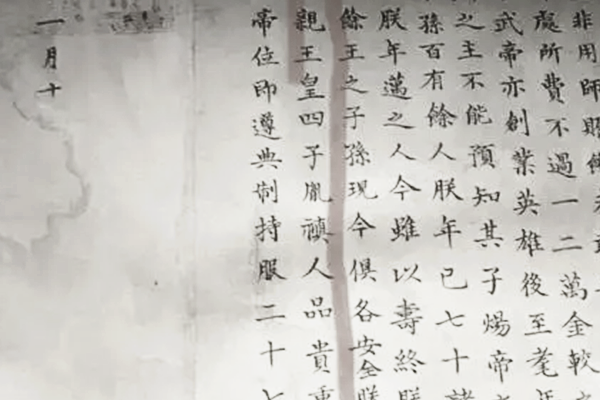 非用師
處所費不過一二萬金較
武帝亦創業英雄後至耄年
之主不能預知其子煬帝
孫百有餘人朕年已七十諸
朕年邁之人今雖以壽終朕
餘王之子孫現今俱各安全朕
親王皇四子胤禛人品貴重
帝位即遵典制持服二十七
一月十